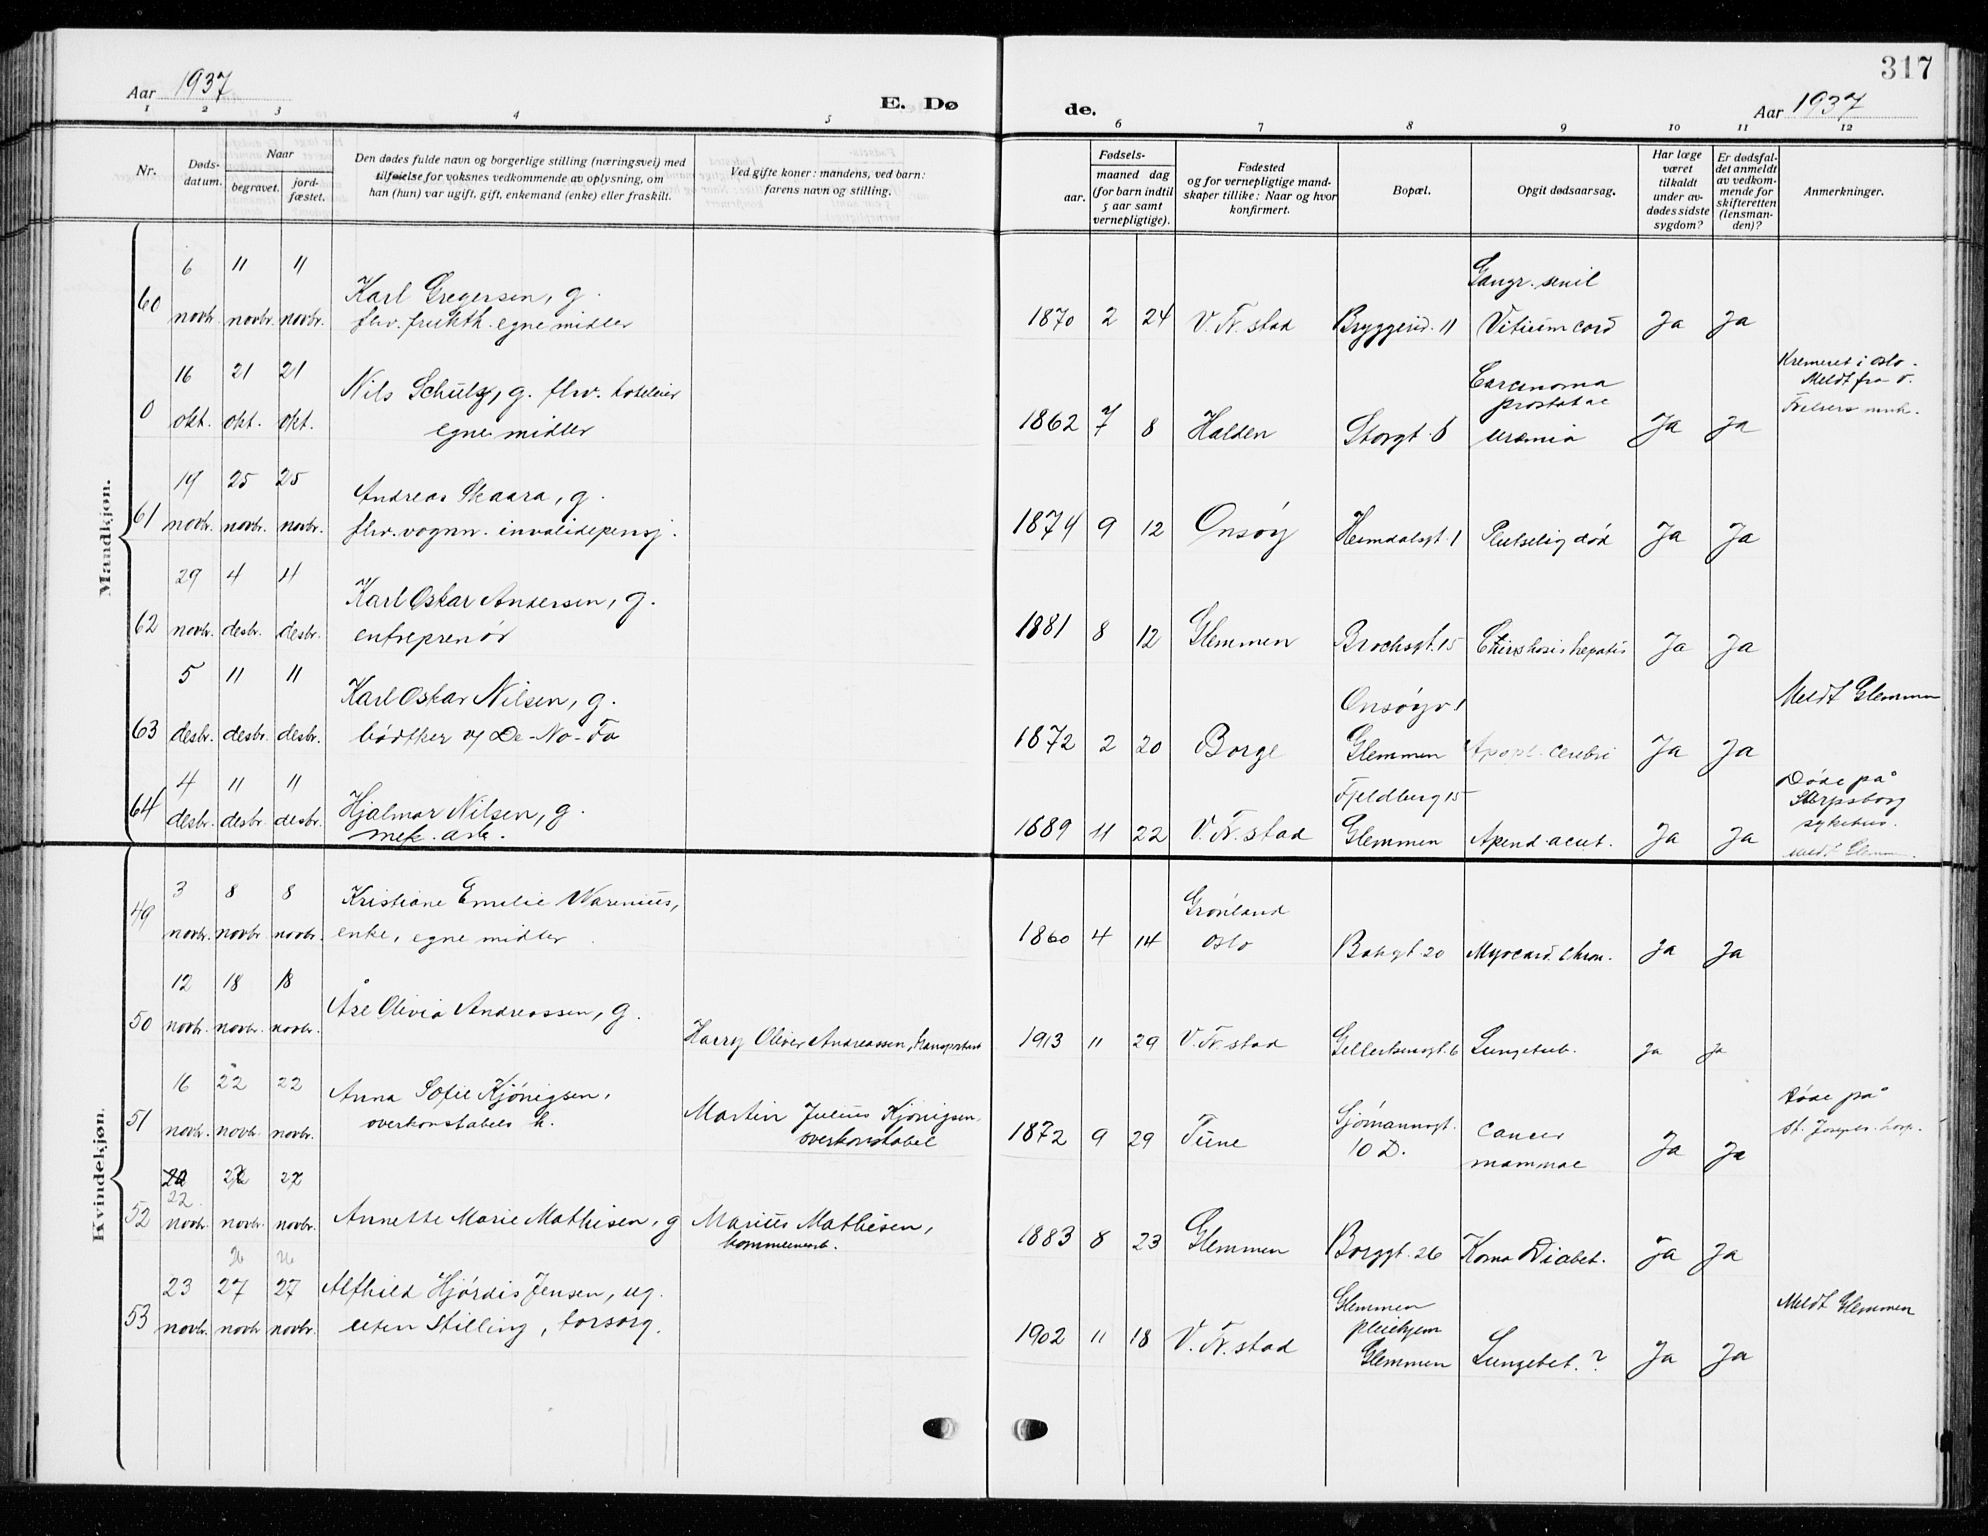 317
Aar 1937
E. Dø de.
Aar 1937
1 2 3 4 5 6 7 8 9 10 11 12
Nr.
Døds-datum.
Naar
begravet.
jord-fæstet.
Den dødes fulde navn og borgerlige stilling (næringsvei) med
tilføielse for voksnes vedkommende av oplysning, om
han (hun) var ugift, gift, enkemand (enke) eller fraskilt.
Ved gifte koner: mandens, ved barn:
farens navn og stilling.
Fødsels-
aar.
maaned dag
(for barn indtil
5 aar samt
vernepligtige).
Fødested
og for vernepligtige mand-
skaper tillike: Naar og hvor
konfirmert.
Bopæl.
Opgit dødsaarsag.
Har læge
været
tilkaldt
under av-
dødes sidste
sygdom?
Er dødsfal-
det anmeldt
av vedkom-
mende for
skifteretten
(lensman-
den)?
Anmerkninger.
Maadkjøn.
6 11 11 Gangr. senil
60 novbr. novbr. novbr. Karl Gregersen, g.
fhv. frukth. egne midler 1870 2 24 V. Fr.stad Byggerid. 11 Vitium cord Ja Ja
16 21 21 Carcinoma Kremeret i Oslo.
Nils Schulz, g. fhv. hoteleier prostatae Meldt fra
0 okt. okt. okt. egne midler 1862 7 8 Halden Storgt. 6 uremia Ja Ja
19 25 25 Andreas Skaara, g.
61 novbr. novbr. novbr. fhv. vognm. invalidepensj. 1874 9 12 Onsøy Heimdalsgt. 1 Plutselig død Ja Ja
29 4 4 Karl Oskar Andersen, g.
62 novbr. desbr. desbr. entreprenør 1881 8 12 Glemmen Brochsgt. 15 hepatis Ja Ja
5 11 11 Karl Oskar Nilsen, g. Onsøyv. 1 Meldt Glemmen
63 desbr. desbr. desbr. bødtker v/ De-No-Fa 1872 2 20 Borge Glemmen Apopl. cerebri Ja Ja
4 11 11 Hjalmar Nilsen, g. Fjeldberg 15 Døde på
64 desbr. desbr. desbr. mek. arb. 1889 11 22 V. Fr.stad Glemmen Apend. acut. Ja Ja Sarpsborg
sykehus.
Meldt Glemm.
Kvindekjøn.
3 8 8 Kristiane Emelie Warenius, Grønland
49 novbr. novbr novbr. enke, egne midler 1860 4 14 Oslo Bakgt. 20 Myocard. chron. Ja Ja
12 18 18 Åse Olivia Andreassen, g.
50 novbr. novbr. novbr. Harry Oliver Andreassen, transportarb 1913 11 29 V. Fr.stad Gellertsensgt. 6 Lungetub. Ja Ja
16 22 22 Anna Sofie Kjønigsen, Martin Julius Kjønigsen Sjømannsgt. cancer Døde på
51 novbr. novbr. novbr. overkonstabels h. overkonstabel 1872 9 29 Tune 10 D. mammae Ja Ja St. Josephs. hosp.
22
52 novbr. novbr. novbr. Annette Marie Mathisen, g Marius Mathisen,
kommunearb. 1883 8 23 Glemmen Borggt. 26 Koma Diabet. Ja Ja
26 26
23 27 27 Alfhild Hjørdis Jensen, ug. Glemmen Meldt Glemmen
53 novbr. novbr novbr. uten stilling, forsørg. 1902 11 18 V. Fr.stad pleiehjem
Glemmen Lungebet. ? Ja Ja